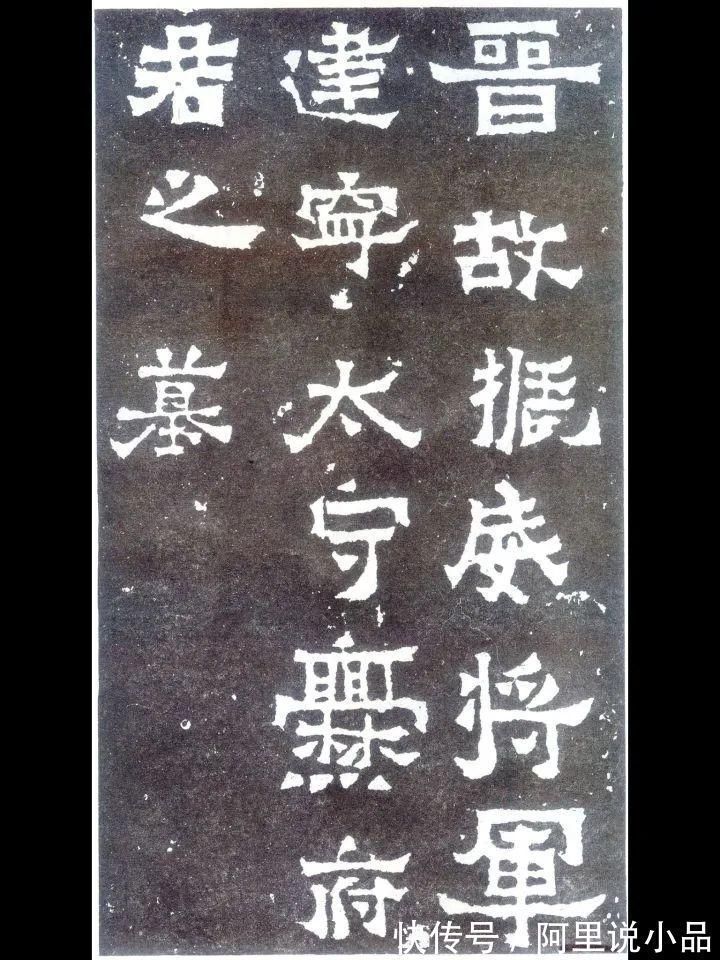 晉故振威將軍
建寧太守爨府
君之墓
快传号/阿里说小品